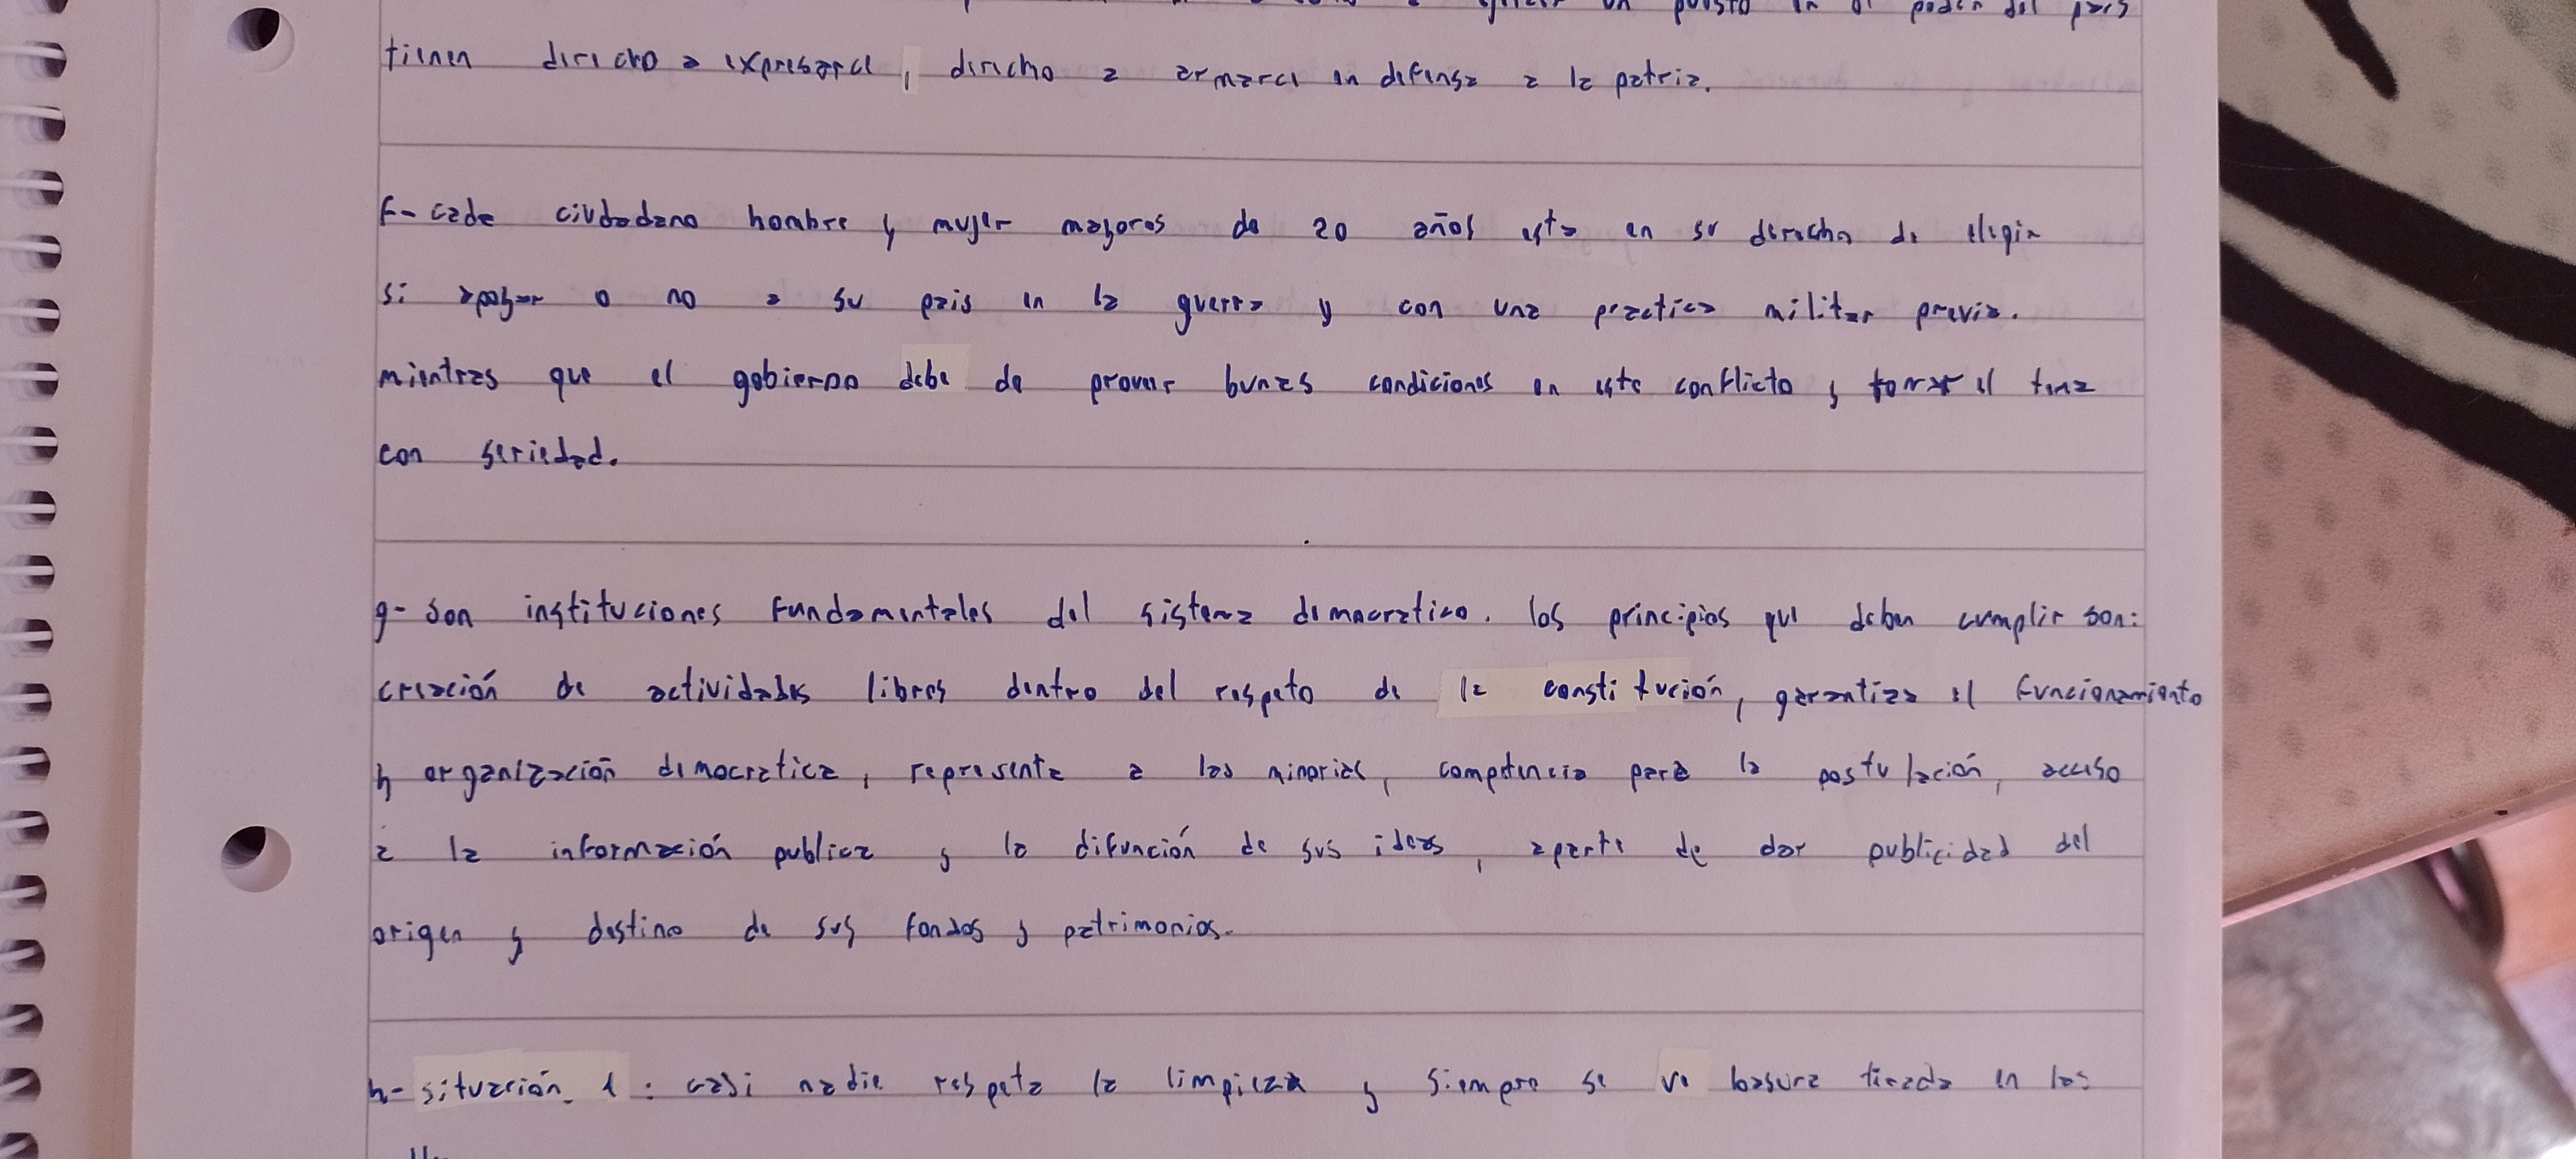 un puesto en el poder del pais
tienen derecho a expresarce, derecho a armarce en defensa a la patria.
f- cada ciudadano hombre y mujer mayores de 20 años esta en su derecho de elegir
si apoyar o no a su pais en la guerra y con una practica militar previa.
mientras que el gobierno debe de proveer bunas condiciones en este conflicto y tomar el tema
con seriedad.
g- son instituciones fundamentales del sistema democratico. los principios que deben cumplir son:
creación de actividades libres dentro del respeto de la constitución, garantiza el funcionamiento
y organización democratica, representa a las minorias, competencia para la postulación, acceso
a la información publica y la difunción de sus ideas, aparte de dar publicidad del
origen y destino de sus fondos y patrimonios.
h- situación 1: casi nadie respeta la limpieza y siempre se ve basura tirada en las